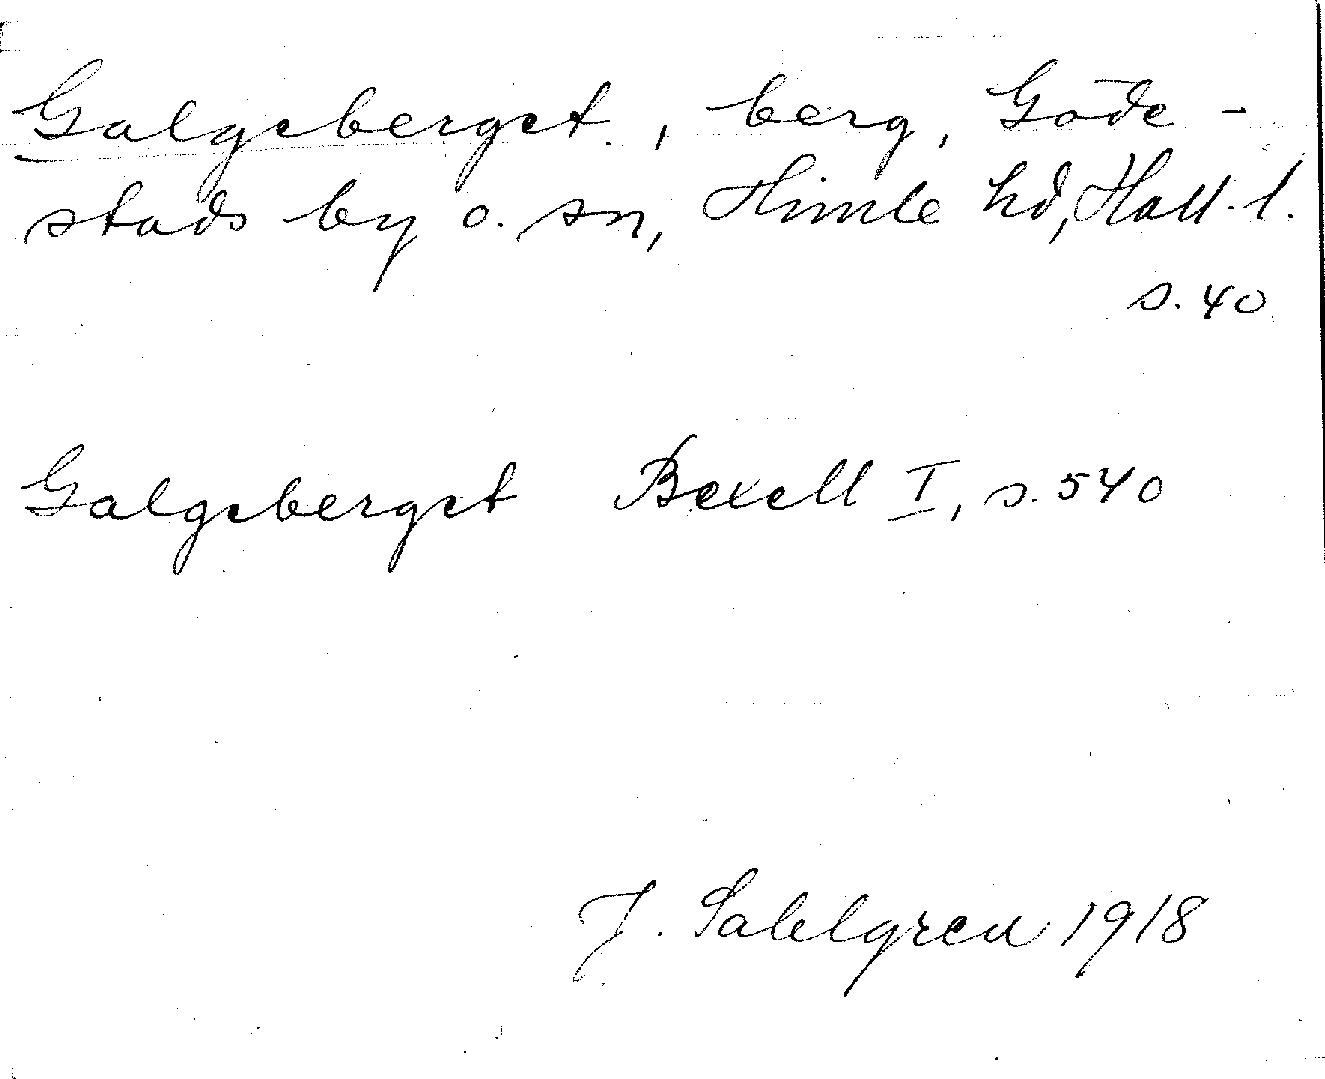 Galgeberget, berg, Göde-
stads by o. sn, Himle hd, Hall. l.
s. 40
Galgeberget Bexell I, s. 540
J. Sahlgren 1918